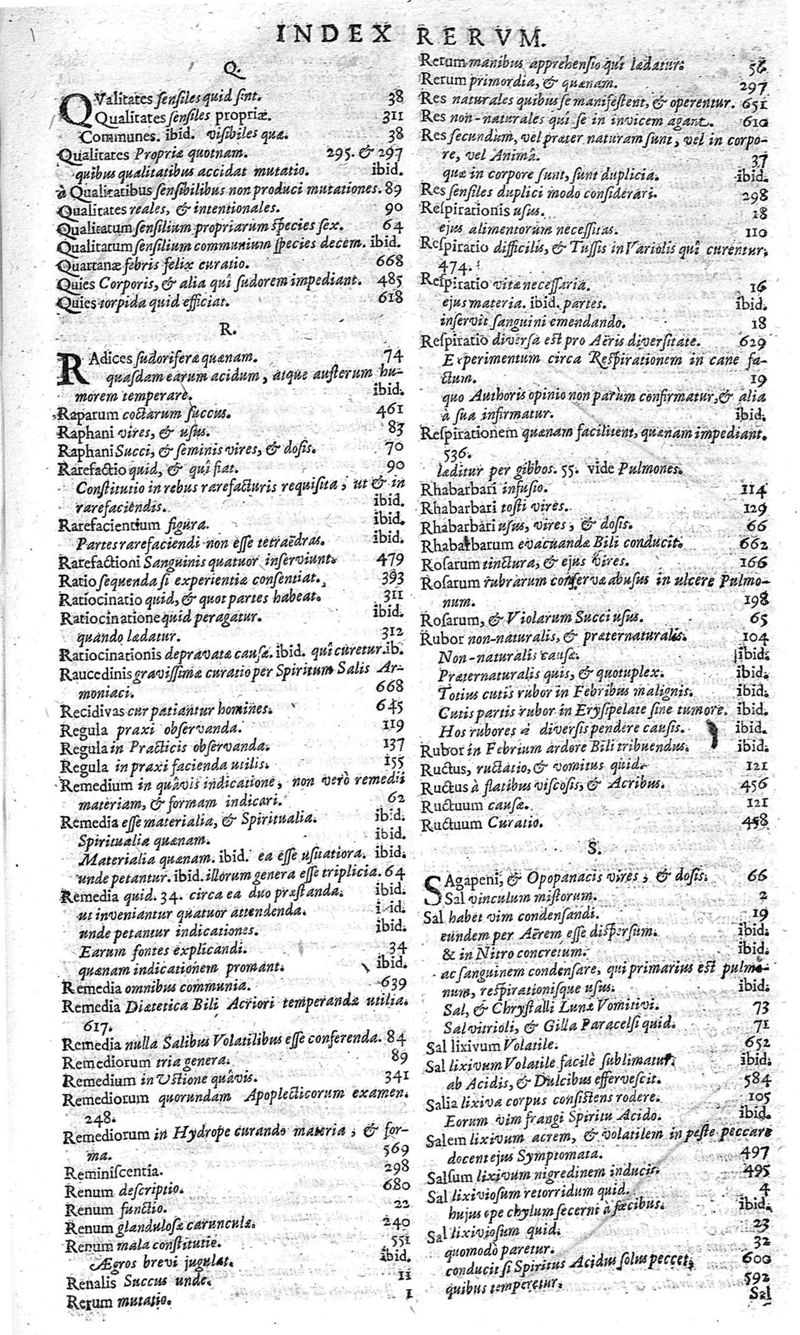 INDEX RERVM.
Q.
QValitates sensiles quid sint. 38
Qualitates sensiles propriæ. 311
Communes. ibid. visibiles quæ. 38
Qualitates Propriæ quotnam. 295. & 297
quibus qualitatibus accidat mutatio. ibid.
à Qualitatibus sensibilibus non produci mutationes. 89
Qualitates reales, & intentionales. 90
Qualitatum sensilium propriarum species sex. 64
Qualitatum sensilium communium species decem. ibid.
Quartanæ febris felix curatio. 668
Quies Corporis, & alia quî sudorem impediant. 485
Quies torpida quid efficiat. 618
R.
RAdices sudoriferæ quænam. 74
quasdam earum acidum, atque austerum humorem temperare. ibid.
Raparum coctarum succus. 461
Raphani vires, & usus. 83
Raphani Succi, & seminis vires, & dosis. 70
Rarefactio quid, & quî fiat. 90
Constitutio in rebus rarefacturis requisita, ut & in
rarefaciendis. ibid.
Rarefacientium figura. ibid.
Partes rarefaciendi non esse tetraëdras. ibid.
Rarefactioni Sanguinis quatuor inserviunt. 479
Ratio sequenda si experientiæ consentiat. 393
Ratiocinatio quid, & quot partes habeat. 311
Ratiocinatione quid peragatur. ibid.
quando lædatur. 312
Ratiocinationis depravatæ causæ. ibid. quî curetur. ib.
Raucedinis gravissimæ curatio per Spiritum Salis Ar-
moniaci. 668
Recidivas cur patiantur homines. 645
Regula praxi observanda. 119
Regula in Practicis observanda. 137
Regula in praxi facienda utilis. 155
Remedium in quâvis indicatione, non verò remedii
materiam, & formam indicari. 62
Remedia esse materialia, & Spiritualia. ibid.
Spiritualia quænam. ibid.
Materialia quænam. ibid. ea esse usuatiora. ibid.
unde petantur. ibid. illorum genera esse triplicia. 64
Remedia quid. 34. circa ea duo præstanda. ibid.
ut inveniantur quatuor attendenda. ibid.
unde petantur indicationes. ibid.
Earum fontes explicandi. 34
quænam indicationem promant. ibid.
Remedia omnibus communia. 639
Remedia Diætetica Bili Acriori temperandæ utilia.
617.
Remedia nulla Salibus Volatilibus esse conferenda. 84
Remediorum tria genera. 89
Remedium in Ustione quâvis. 341
Remediorum quorundam Apoplecticorum examen.
248.
Remediorum in Hydrope curando materia, & for-
ma. 569
Reminiscentia. 298
Renum descriptio. 680
Renum functio. 22
Renum glandulosæ carunculæ. 240
Renum mala constitutio. 551
Ægros brevi jugulat. ibid.
Renalis Succus unde. 11
Rerum mutatio. 1
Rerum manibus apprehensio quî lædatur. 56
Rerum primordia, & quænam. 297
Res naturales quibus se manifestent, & operentur. 651
Res non-naturales quî se in invicem agant. 610
Res secundum, vel præter naturam sunt, vel in corpo-
re, vel Animâ. 37
quæ in corpore sunt, sunt duplicia. ibid.
Res sensiles duplici modo considerari. 298
Respirationis usus. 18
ejus alimentorum necessitas. 110
Respiratio difficilis, & Tussis in Variolis quî curentur.
474.
Respiratio vitæ necessaria. 16
ejus materia. ibid. partes. ibid.
inservit sanguini emendando. 18
Respiratio diversa est pro Aëris diversitate. 629
Experimentum circa Respirationem in cane fa-
ctum. 19
quo Authoris opinio non parùm confirmatur, & alia
à sua infirmatur. ibid.
Respirationem quænam facilitent, quænam impediant.
536.
læditur per gibbos. 55. vide Pulmones.
Rhabarbari infusio. 114
Rhabarbari tosti vires. 129
Rhabarbari usus, vires, & dosis. 66
Rhabarbarum evacuandæ Bili conducit. 662
Rosarum tinctura, & ejus vires. 166
Rosarum rubrarum conservæ abusus in ulcere Pulmo-
num. 198
Rosarum, & Violarum Succi usus. 65
Rubor non-naturalis, & præternaturalis. 104
Non-naturalis causæ. ibid.
Præternaturalis quis, & quotuplex. ibid.
Totius cutis rubor in Febribus malignis. ibid.
Cutis partis rubor in Erysipelate sine tumore. ibid.
Hos rubores à diversis pendere causis. ibid.
Rubor in Febrium ardore Bili tribuendus. ibid.
Ructus, ructatio, & vomitus quid. 121
Ructus à flatibus viscosis, & Acribus. 456
Ructuum causæ. 121
Ructuum Curatio. 458
S.
SAgapeni, & Opopanacis vires, & dosis. 66
Sal vinculum mistorum. 2
Sal habet vim condensandi. 19
eundem per Aërem esse dispersum. ibid.
& in Nitro concretum. ibid.
ac sanguinem condensare, qui primarius est pulmo-
num, respirationisque usus. ibid.
Sal, & Chrystalli Lunæ Vomitivi. 73
Sal vitrioli, & Gilla Paracelsi quid. 71
Sal lixivum Volatile. 652
Sal lixivum Volatile facilè sublimatur. ibid.
ab Acidis, & Dulcibus effervescit. 584
Salia lixiva corpus consistens rodere. 105
Eorum vim frangi Spiritu Acido. ibid.
Salem lixivum acrem, & volatilem in peste peccare
docent ejus Symptomata. 497
Salsum lixivum nigredinem inducit. 495
Sal lixiviosum retorridum quid. 4
hujus ope chylum secerni à fæcibus. ibid.
Sal lixiviosum quid. 23
quomodò paretur. 32
conducit si Spiritus Acidus solus peccet. 600
quibus temperetur. 592
Sal